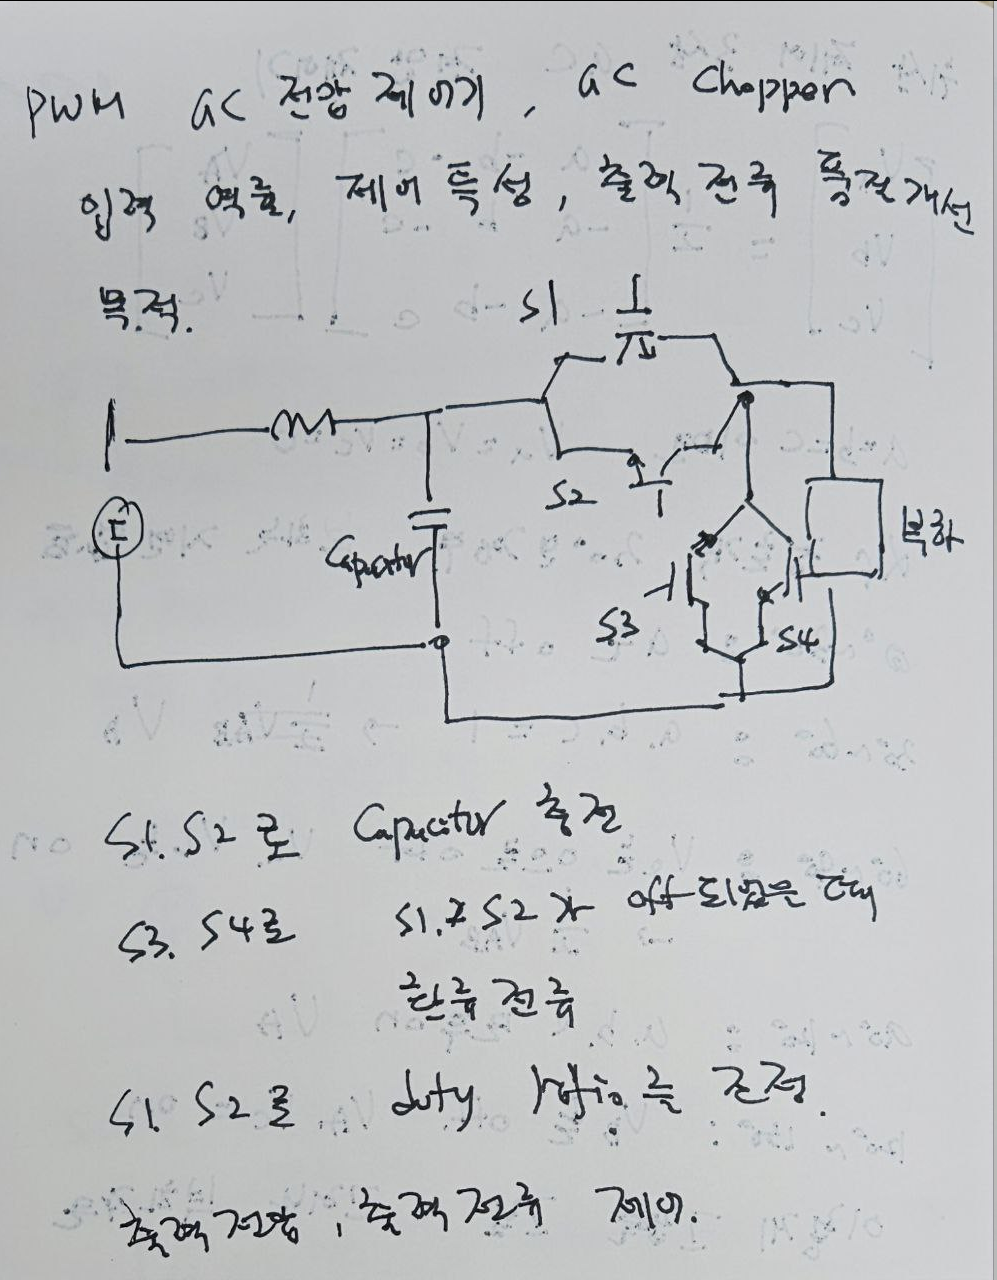 PWM AC 전압 제어기, AC Chopper
입력 역률, 제어 특성, 출력 전류 품질개선
목적.
S1
S2
E
Capacitor
부하
S3
S4
S1. S2 로 Capacitor 충전
S3. S4로 S1.과 S2 가 off 되었을 때
환류 전류
S1. S2 로 duty ratio를 조정.
출력 전압, 출력 전류 제어.